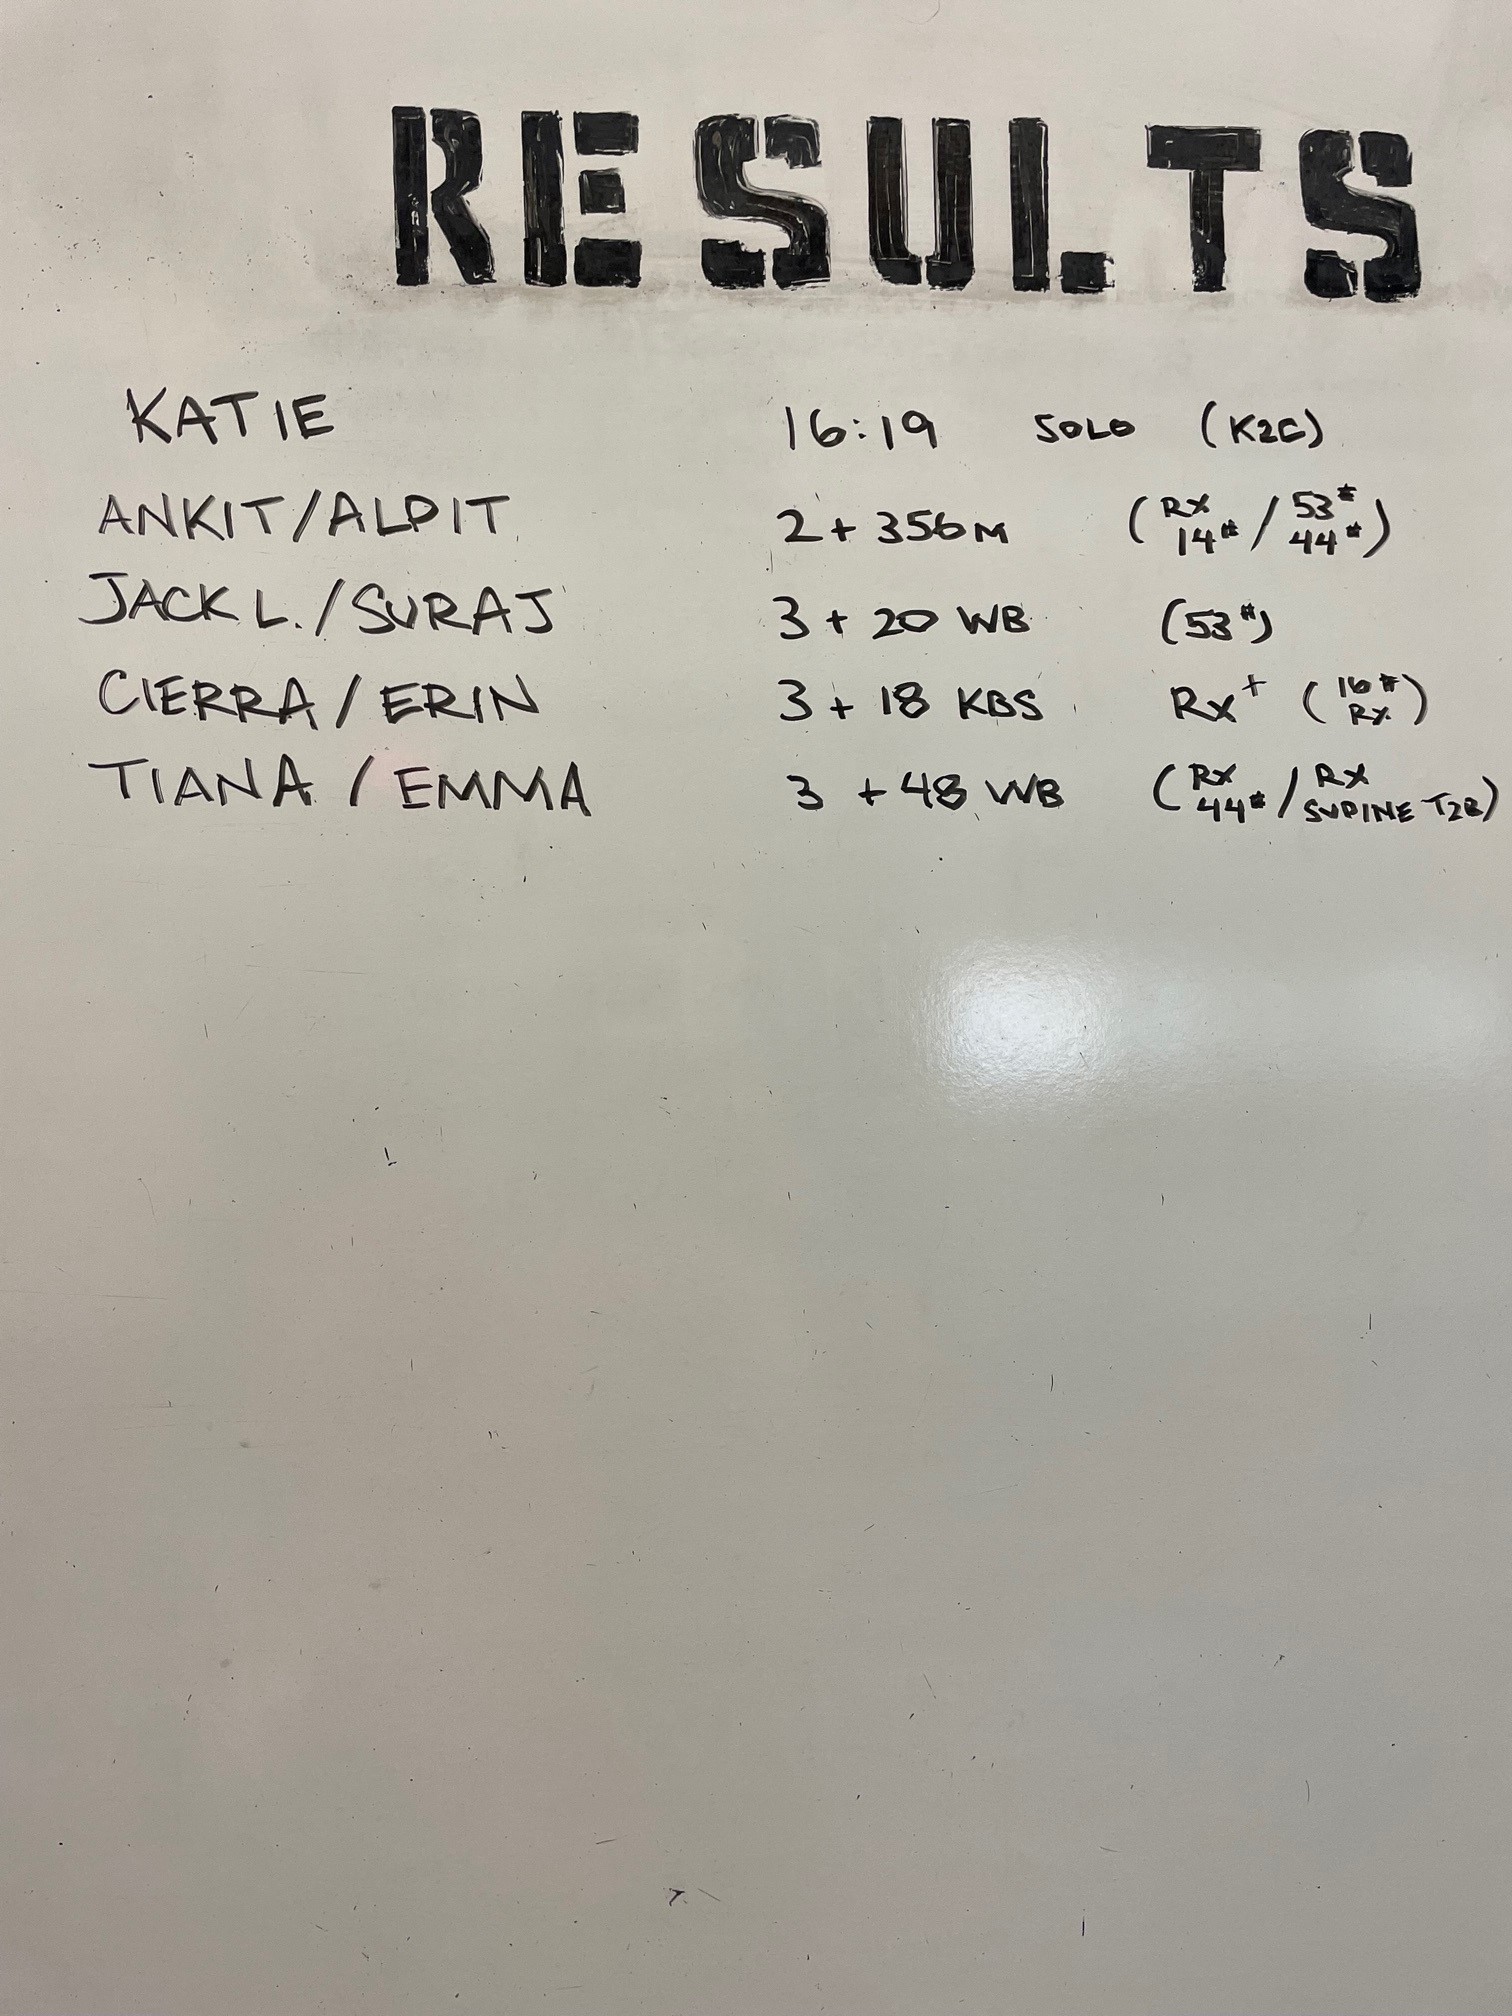 RESULTS
KATIE 16:19 SOLO (K2E)
ANKIT/ALPIT 2 + 356M (RX 14# / 53# 44#)
JACK L./SURAJ 3 + 20 WB (53#)
CIERRA/ERIN 3 + 18 KBS RX+ (16# RX)
TIANA/EMMA 3 + 48 WB (RX 44# / RX SUPINE T2B)